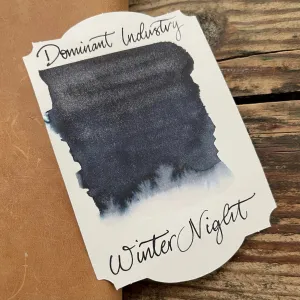 Dominant Industry
Winter Night